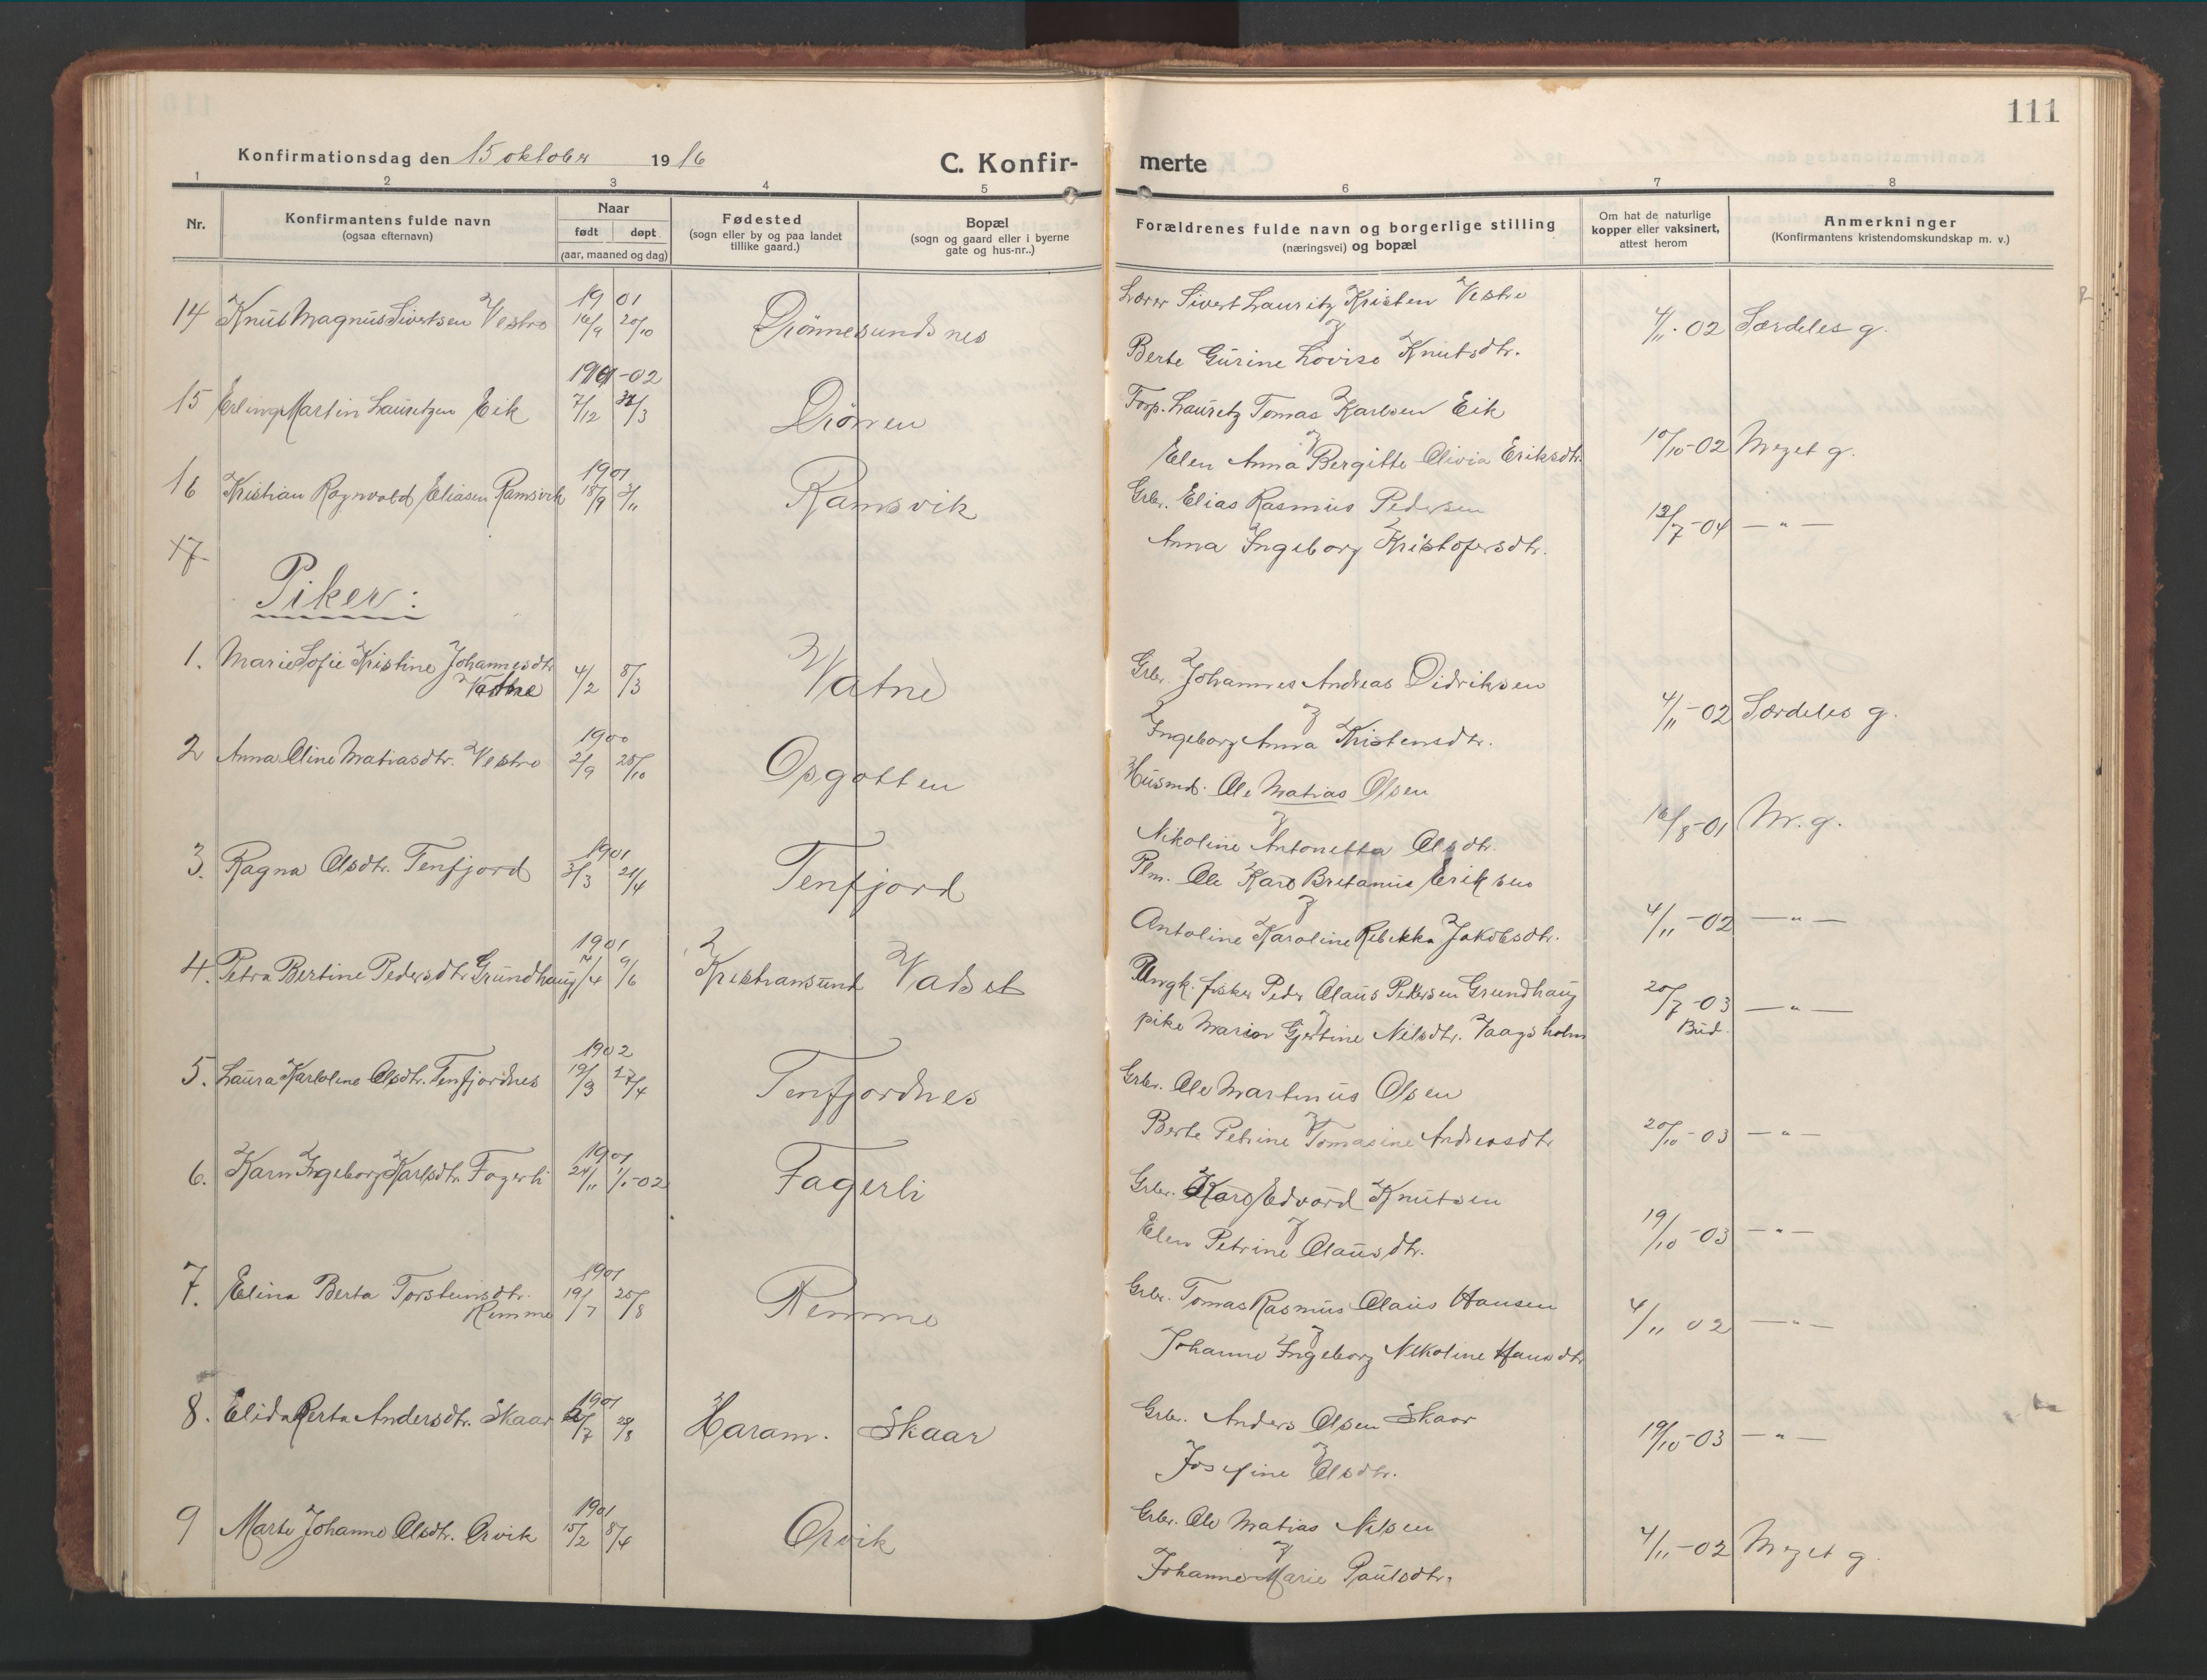 111
Konfirmationsdag den 15 oktober 1916
C. Konfir-
merte
1 2 3 4 5 6 7 8
Nr.
Konfirmantens fulde navn
(ogsaa efternavn)
Naar
født døpt
(aar, maaned og dag)
Fødested
(sogn eller by og paa landet
tillike gaard.)
Bopæl
(sogn og gaard eller i byerne
gate og hus-nr..)
Forældrenes fulde navn og borgerlige stilling
(næringsvei) og bopæl
Om hat de naturlige
kopper eller vaksinert,
attest herom
Anmerkninger
(Konfirmantens kristendomskundskap m. v.)
1901
14 Knut Magnus Sivertsen Vestre 16/9 20/10 Drönnesundsnes
Lærer Sivert Lauritz Kristen Vestre
Berte Gurine Lovise Knutsdtr.
4/11-02 Særdeles g.
1901-02
15 Erling Martin Lauritzen Eik 7/12 31/3 Drönen
Forp. Lauritz Tomas Karlsen Eik
Elen Anna Bergitte Olivia Eriksdtr.
10/10-02 Meget g.
1901
16 Kristian Ragnvald Eliasen Ramsvik 18/9 3/11 Ramsvik
Grbr. Elias Rasmus Pedersen
Anna Ingeborg Kristofersdtr.
12/7-04 — " —
17
Piker:
1. Marie Sofie Kristine Johannesdtr
Vatne 4/2 8/3 Vatne
Grbr. Johannes Andreas Didriksen
Ingeborg Anna Kristensdtr.
4/11-02 Særdeles g.
1900
2 Anna Oline Matiasdtr. Vestre 2/9 28/10 Opgotten
Husmd. Ole Matias Olsen
Nikoline Antonetta Olsdtr.
16/8-01 M. g.
1901
3. Ragna Olsdtr. Tenfjord 3/3 21/4 Tenfjord
Plm. Ole Karl Bretanus Eriksen
Antoline Karoline Rebekka Jakobsdtr.
4/11-02 — " —
1901
4. Petra Bertine Pedersdtr Grundhaug 14/4 9/6 Kristiansund Vadset
Ungk. fisker Peder Olaus Pedersen Grundhaug
pike Marion Gjertine Nilsdtr. Vaagsholm
20/7-03 — " —
Bud.
1902
5. Laura Karoline Olsdtr. Tenfjordnes 19/3 27/4 Tenfjordnes
Grbr. Ole Martinus Olsen
Berte Petrine Tomasine Andreasdtr
20/10-03 — " —
1901
6. Karn Ingeborg Karlsdtr. Fagerli 24/11 1/1-02 Fagerli
Grbr. Karl Edvard Knutsen
Elen Petrine Olausdtr.
19/10-03 — " —
1901
7. Elina Berta Torsteinsdtr.
Remme 19/7 25/8 Remme
Grbr. Tomas Rasmus Olaus Hansen
Johanne Ingeborg Nikoline Hansdtr
4/11 02 — " —
1901
8. Elida Berta Andersdtr. Skaar /7 28/8 Haram. Skaar
Grbr. Anders Olsen Skaar
Josefine Olsdtr.
19/10-03 — " —
1901
9 Marte Johanne Olsdtr. Orvik 15/2 8/4 Orvik
Grbr. Ole Matias Nilsen
Johanne Marie Paulsdtr.
4/11-02 Meget g.